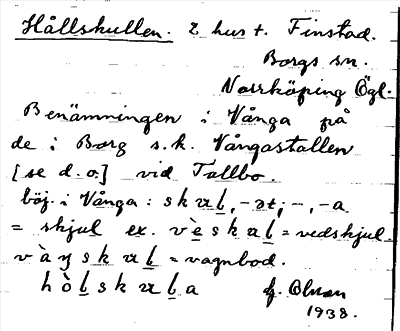 Hållskullen. 2 hus t. Finstad.
Borgs sn.
Norrköping Ögl.
Benämningen i Vånga på
de i Borg s.k. Vångastallen
[se d.o.] vid Tallbo.
böj. i Vånga : skɯl, -ət; -, -a
= skjul ex. vèskɯl = vedskjul.
vàŋskɯl = vagnbod.
hòlskɯla
1938.